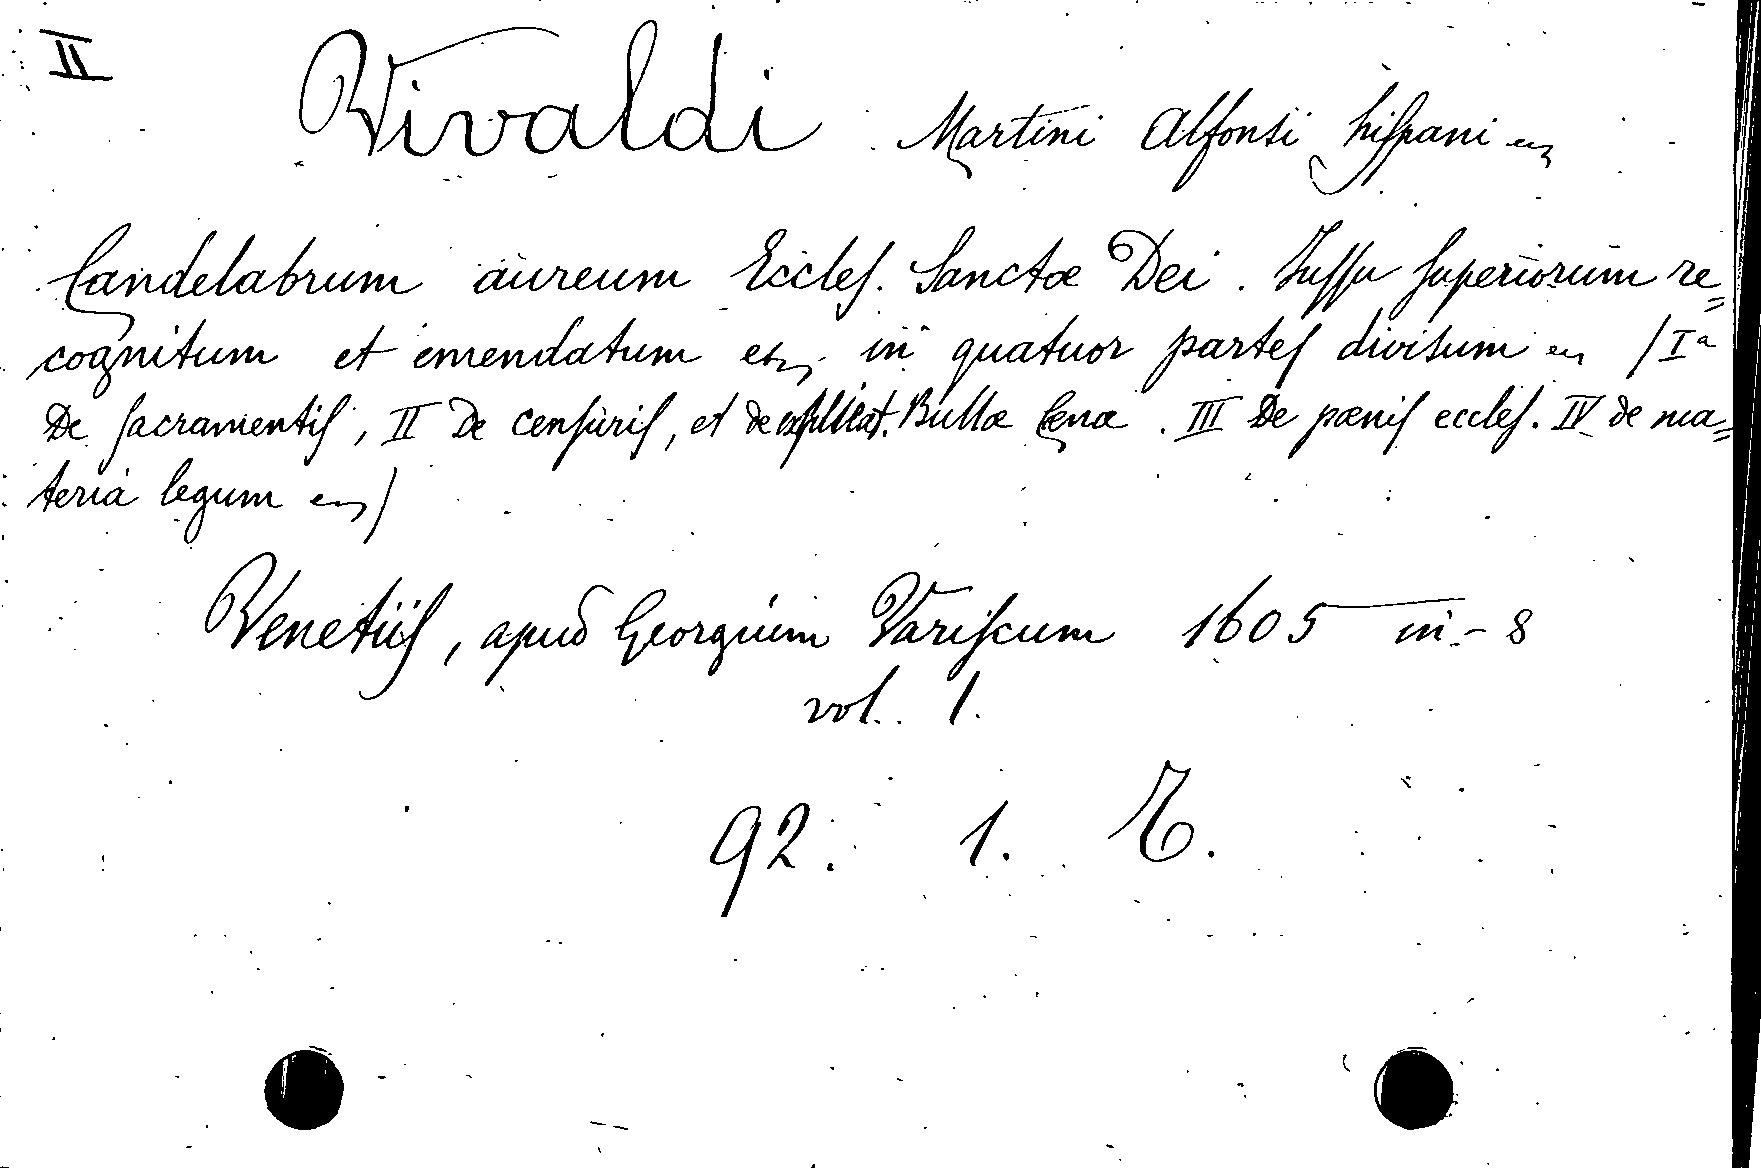 II
Vivaldi Martini Alfonsi hiſpani ec
Candelabrum aureum Eccleſ. Sanctæ Dei. Juſſu ſuperiorum re=
cognitum et emendatum etc in quatuor parteſ divisum ec /Iª
De ſacramentiſ, II De cenſuriſ, et de explicat. Bullæ Cenæ. III De pœniſ eccleſ. IV de ma=
teria legum ec/
Venetiiſ, apud Georgium Variſcum 1605 in-8
vol. 1.
92. 1. E.